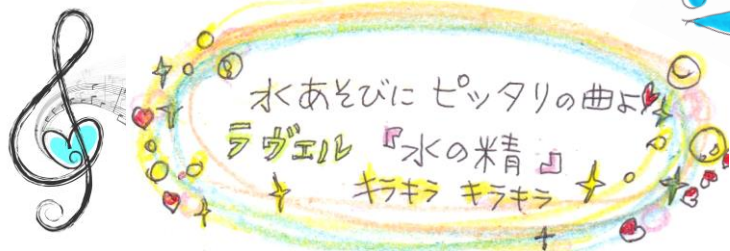 水あそびに ピッタリの曲よ
ラヴェル 『水の精』
キラキラ キラキラ